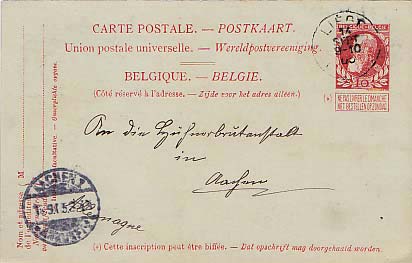 CARTE POSTALE. — POSTKAART.
Union postale universelle. — Wereldpostvereeniging.
BELGIQUE. — BELGIE.
(Côté réservé à l'adresse. — Zijde voor het adres alleen.)
LIEGE
10
NE PAS LIVRER LE DIMANCHE
NIET BESTELLEN OP ZONDAG
(*)
An die Hühnerbrutanstalt
in
Aachen
Allemagne
AACHEN
M
Nom et adresse
(*) Cette inscription peut être biffée. — Dat opschrift mag doorgehaald worden.